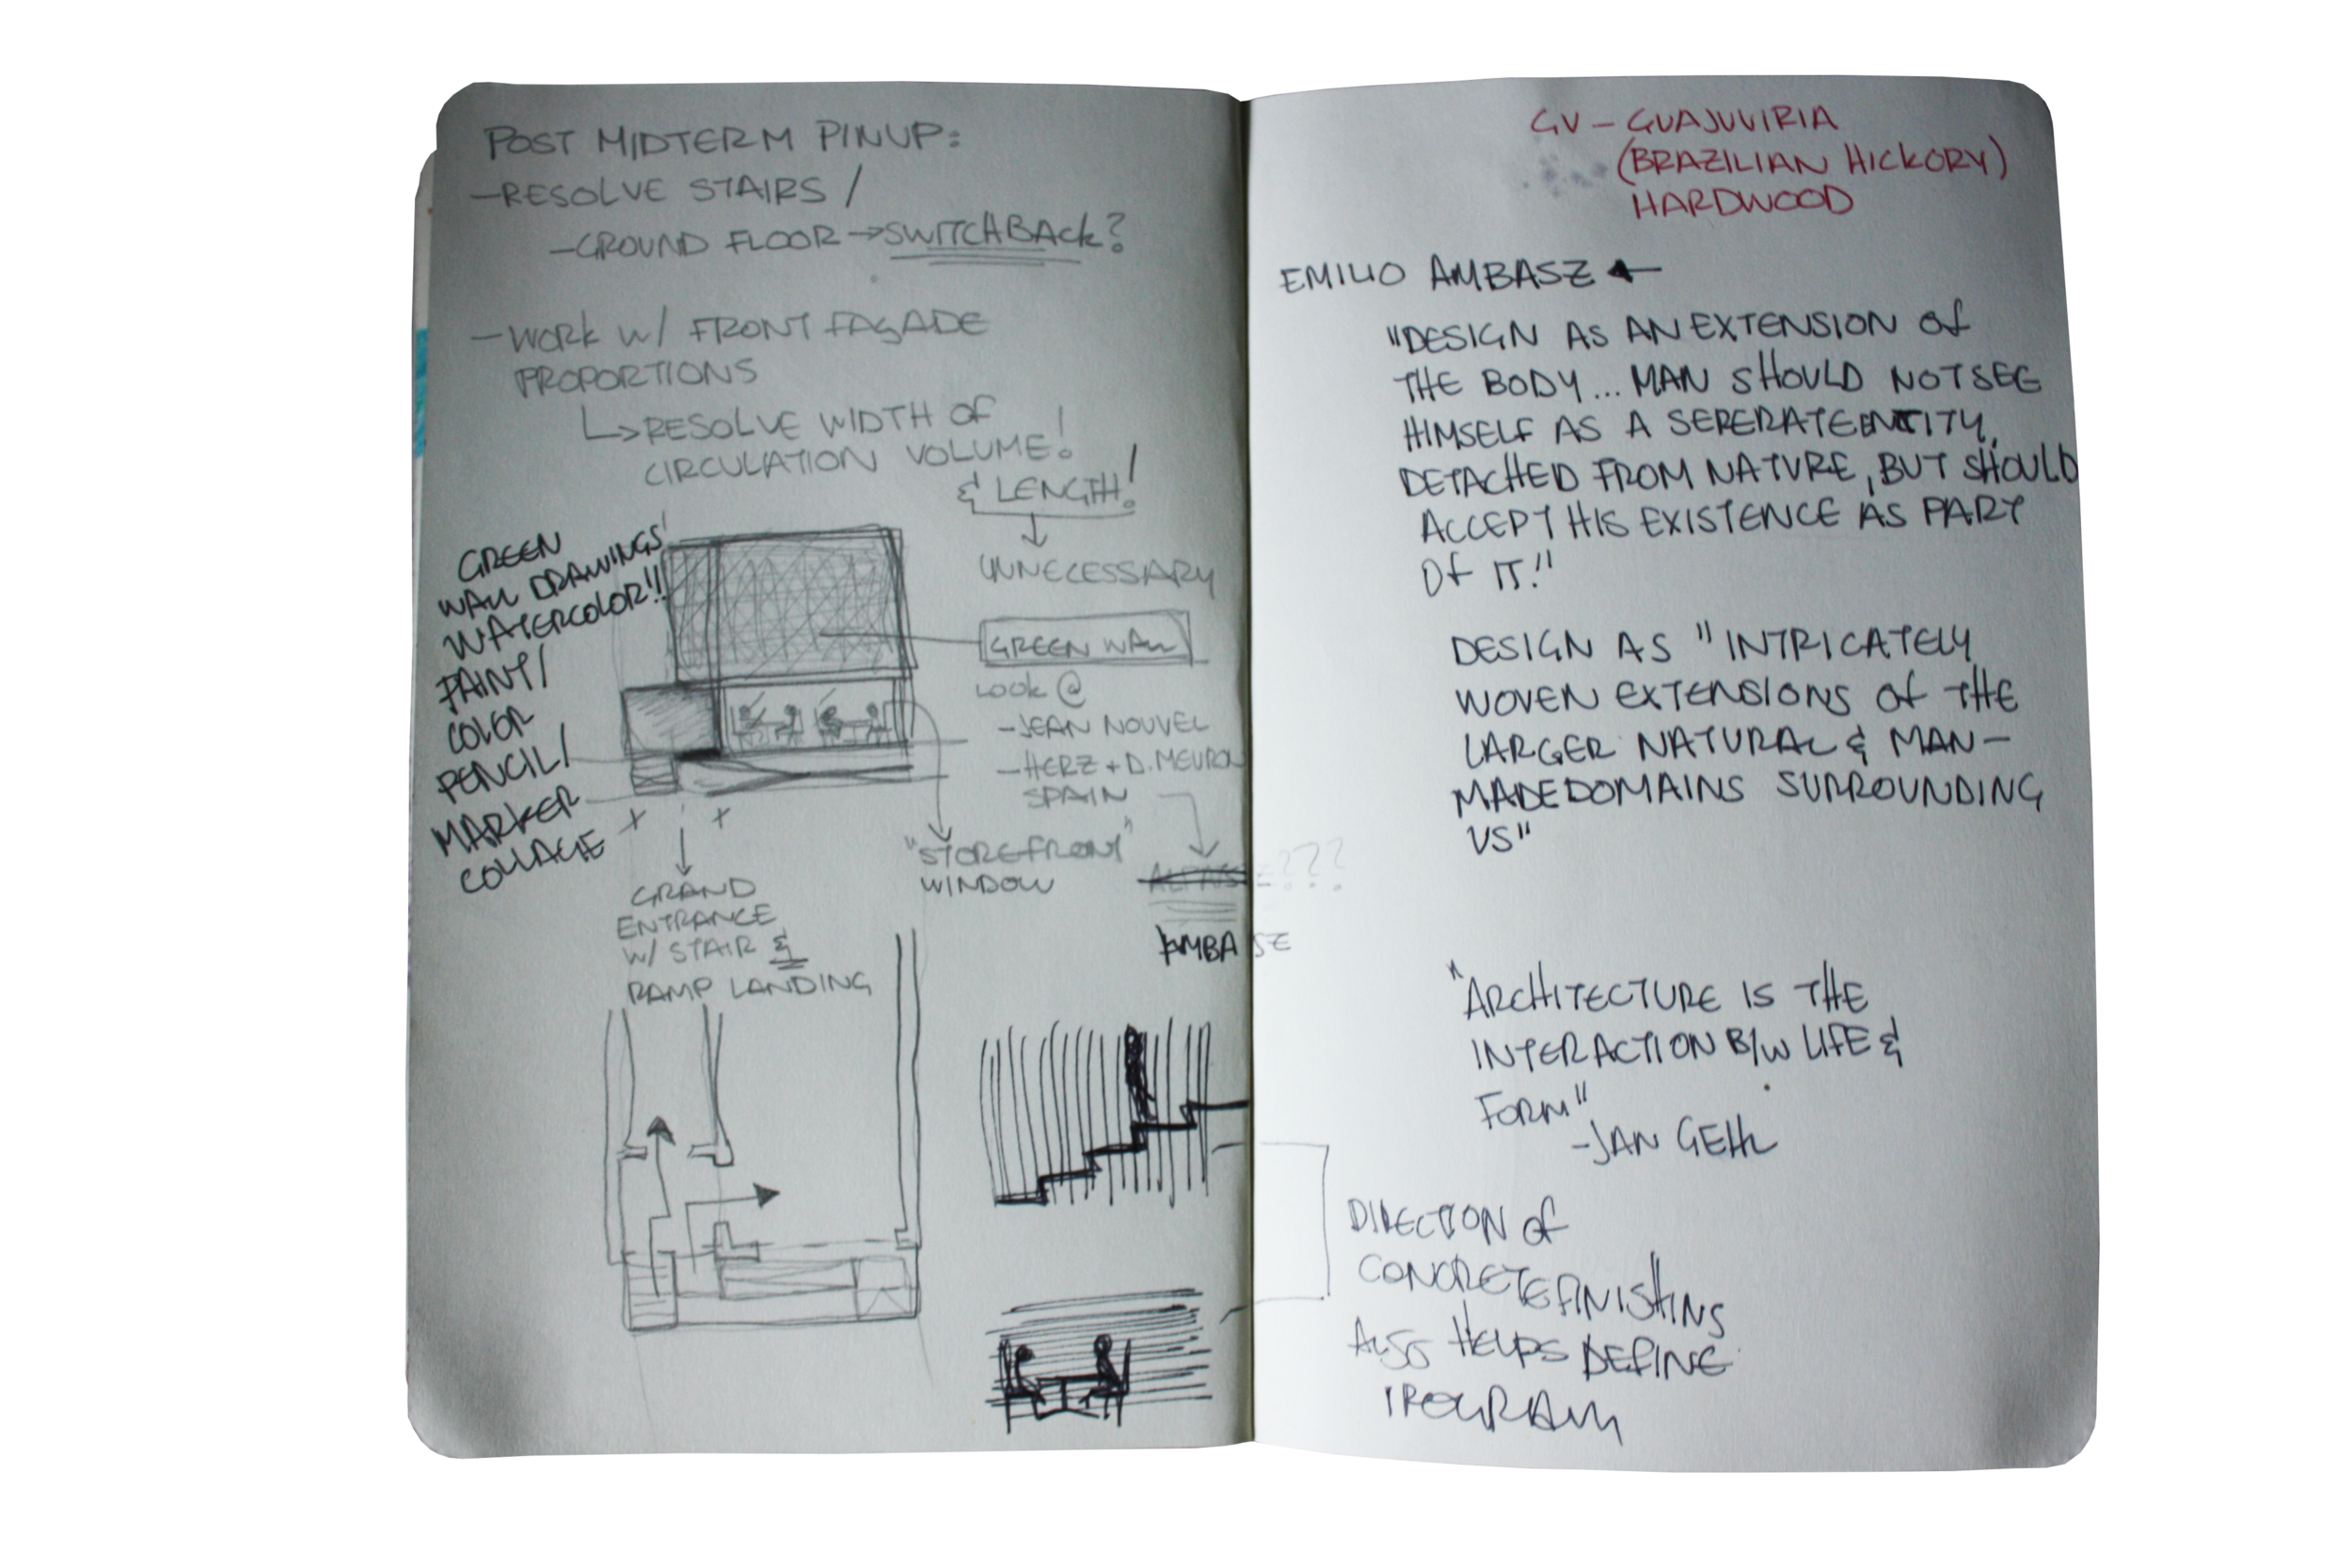 POST MIDTERM PINUP:
-RESOLVE STAIRS /
-GROUND FLOOR → SWITCHBACK?
-WORK W/ FRONT FAÇADE
PROPORTIONS
↳ RESOLVE WIDTH OF
CIRCULATION VOLUME!
& LENGTH!
UNNECESSARY
GREEN
WALL DRAWINGS!
WATERCOLOR!!
PAINT/
COLOR
PENCIL/
MARKER
COLLAGE
GREEN WALL
LOOK @
-JEAN NOUVEL
-HERZ + D. MEURON
SPAIN
"STOREFRONT"
WINDOW
???
AMBASZ
GRAND
ENTRANCE
W/ STAIR &
RAMP LANDING
GV - GUAJUVIRIA
(BRAZILIAN HICKORY)
HARDWOOD
EMILIO AMBASZ ←
"DESIGN AS AN EXTENSION OF
THE BODY... MAN SHOULD NOT SEE
HIMSELF AS A SEPERATE ENTITY,
DETACHED FROM NATURE, BUT SHOULD
ACCEPT HIS EXISTENCE AS PART
OF IT."
DESIGN AS "INTRICATELY
WOVEN EXTENSIONS OF THE
LARGER NATURAL & MAN-
MADE DOMAINS SURROUNDING
US"
"ARCHITECTURE IS THE
INTERACTION B/W LIFE &
FORM"
-JAN GEHL
DIRECTION OF
CONCRETE FINISHING
ALSO HELPS DEFINE
PROGRAM